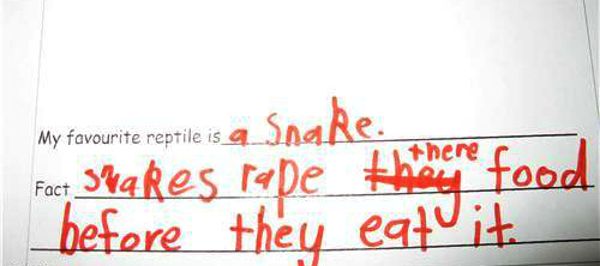 My favourite reptile is a snake.
Fact snakes rape they there food
before they eat it.